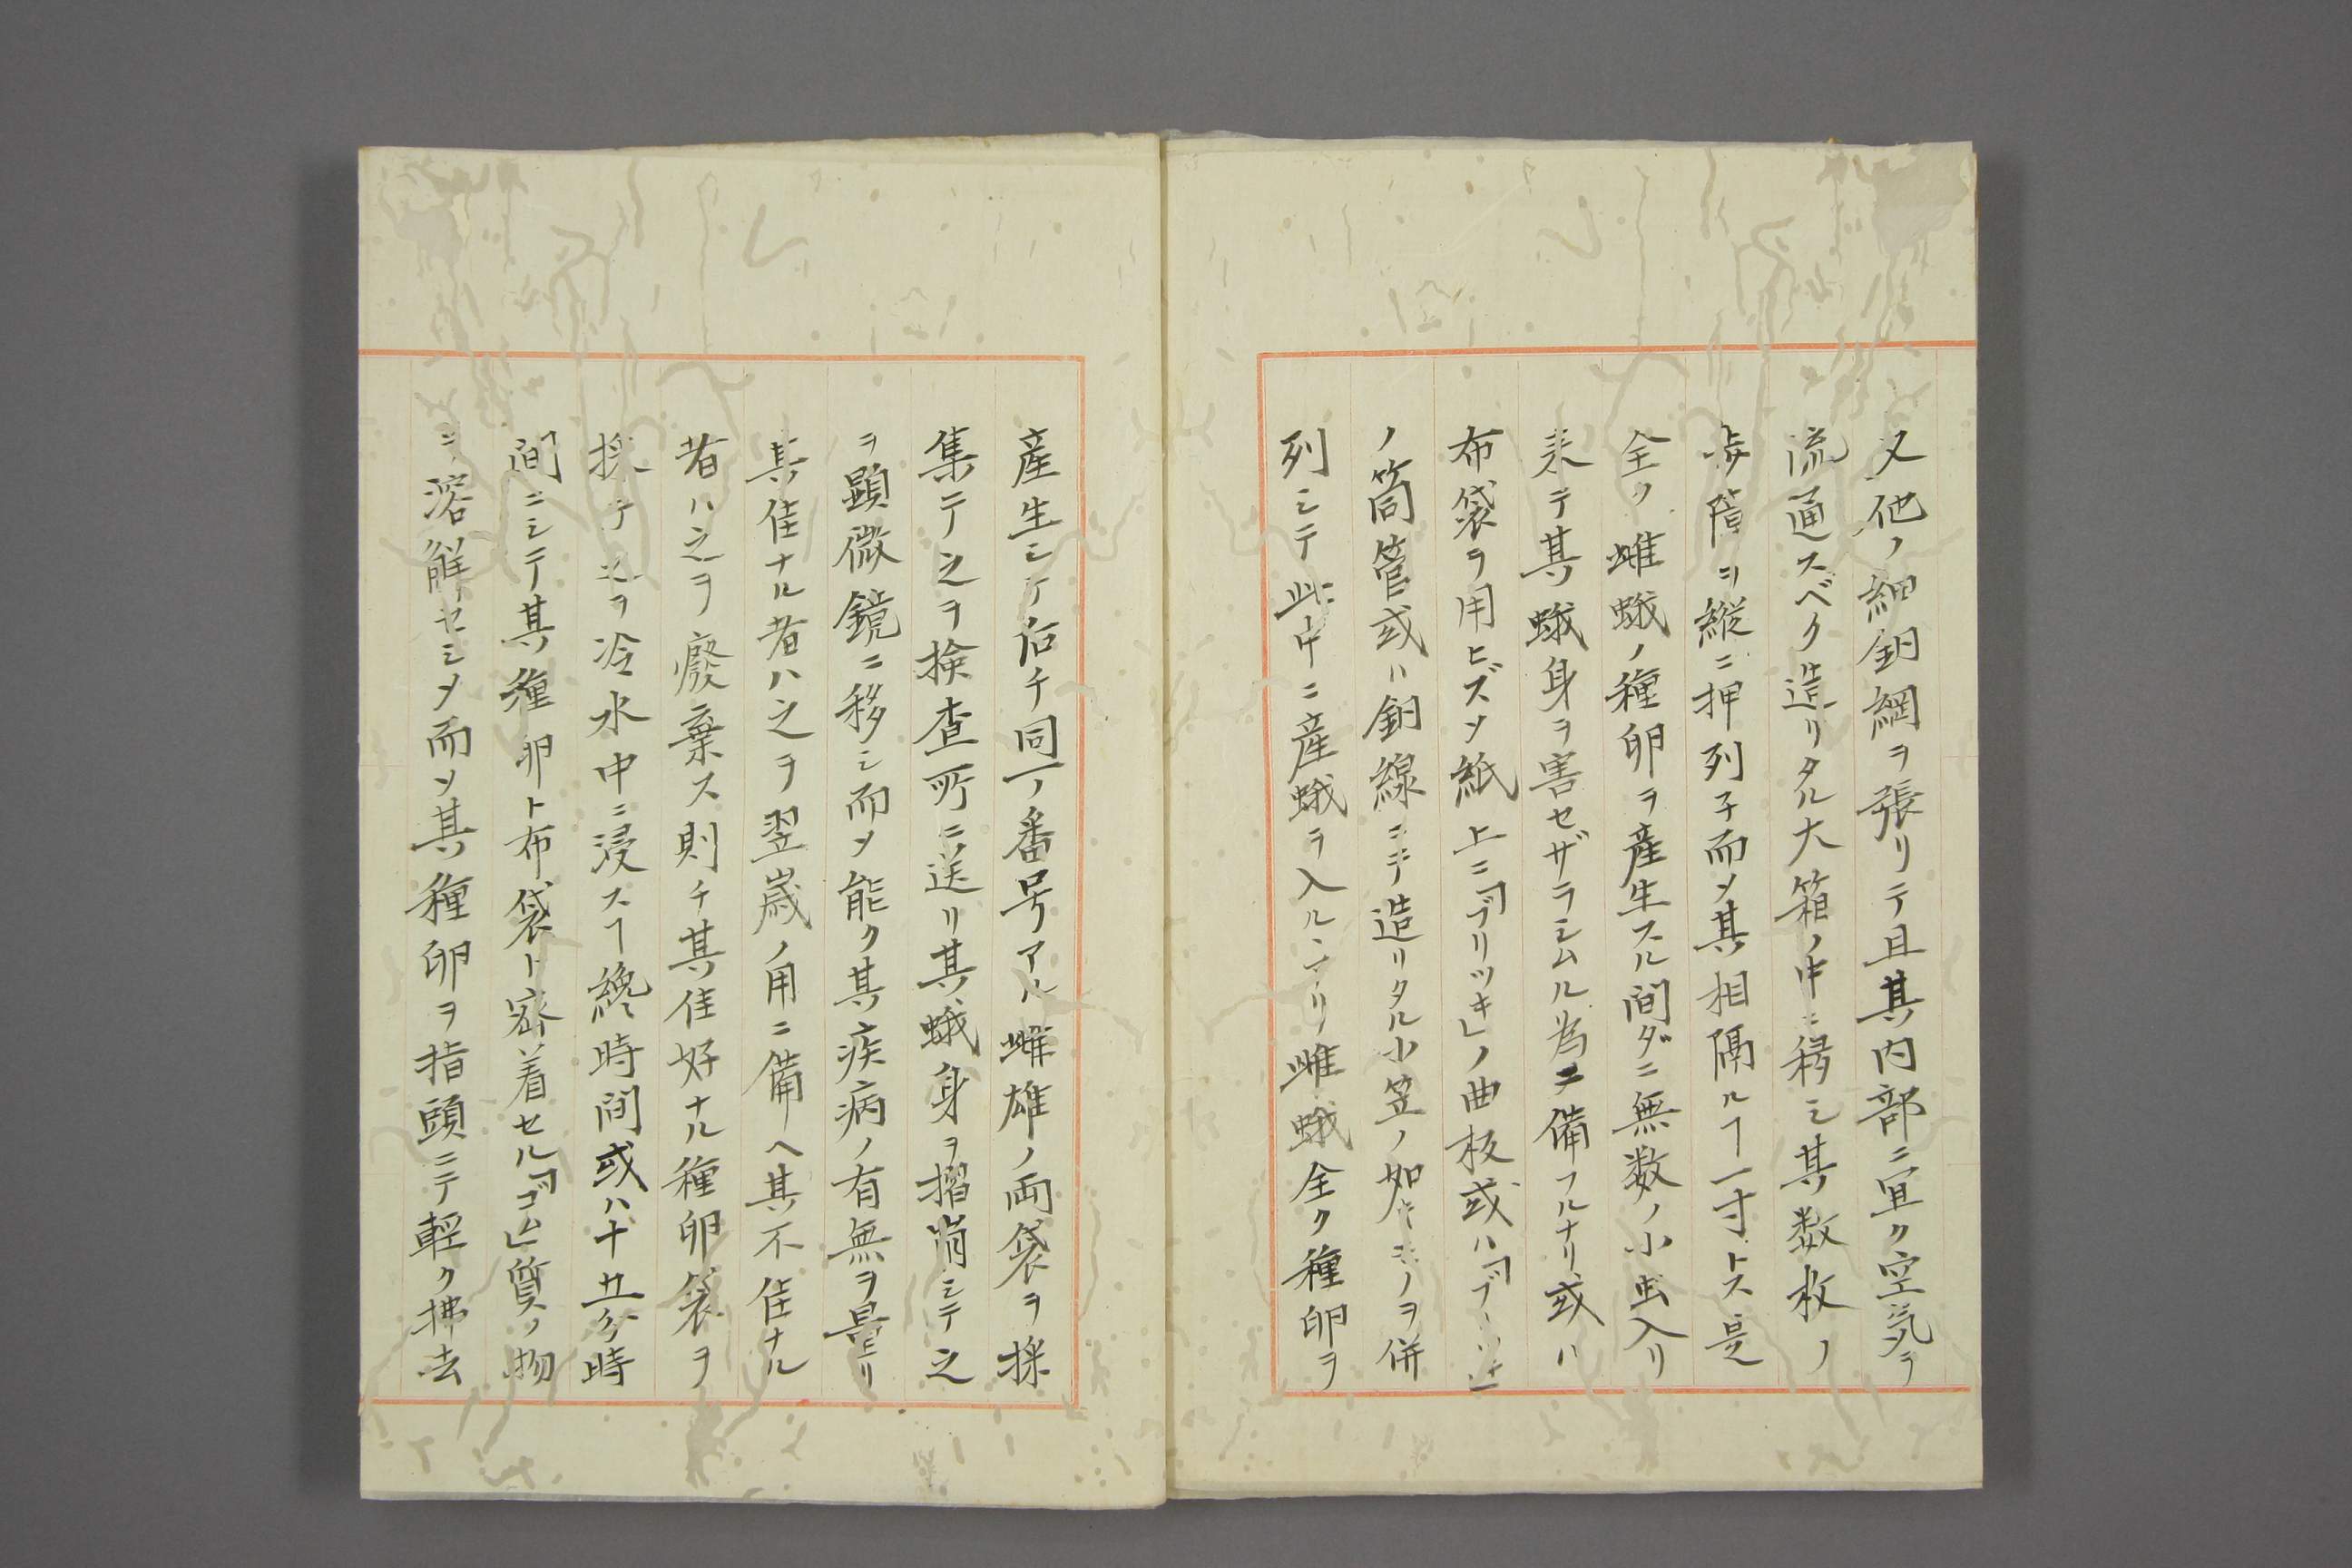 又他ノ細銅網ヲ張リテ且其内部ニ宜ク空気ヲ
流通スベク造リタル大箱ノ中ニ移シ其数枚ノ
歩障ヲ縦ニ押列子而〆其相隔ルヿ一寸トス是
全ク雌蛾ノ種卵ヲ産生スル間ダニ無数ノ小虫入リ
来テ其蛾身ヲ害セザラシムル為ニ備フルナリ或ハ
布袋ヲ用ヒズ〆紙上ニ「ブリツキ」ノ曲板或ハ「ブリツキ」
ノ筒管或ハ銅線ニテ造リタル小笠ノ如キモノヲ併
列シテ此中ニ産蛾ヲ入ルヽアリ雌蛾全ク種卵ヲ
産生シテ后チ同一番号アル雌雄ノ両袋ヲ採
集テ之ヲ検査所ニ送リ其蛾身ヲ摺潰シテ之
ヲ顕微鏡ニ移シ而〆能ク其疾病ノ有無ヲ見トリ
其佳ナル者ハ之ヲ翌歳ノ用ニ備ヘ其不佳ナル
者ハ之ヲ廃棄ス則チ其佳好ナル種卵袋ヲ
採テ之ヲ冷水中ニ浸スヿ纔時間或ハ十五分時
間ニシテ其種卵ト布袋ト密着セル「ゴム」質ノ物
ヲ溶解セシメ而〆其種卵ヲ指頭ニテ軽ク拂去